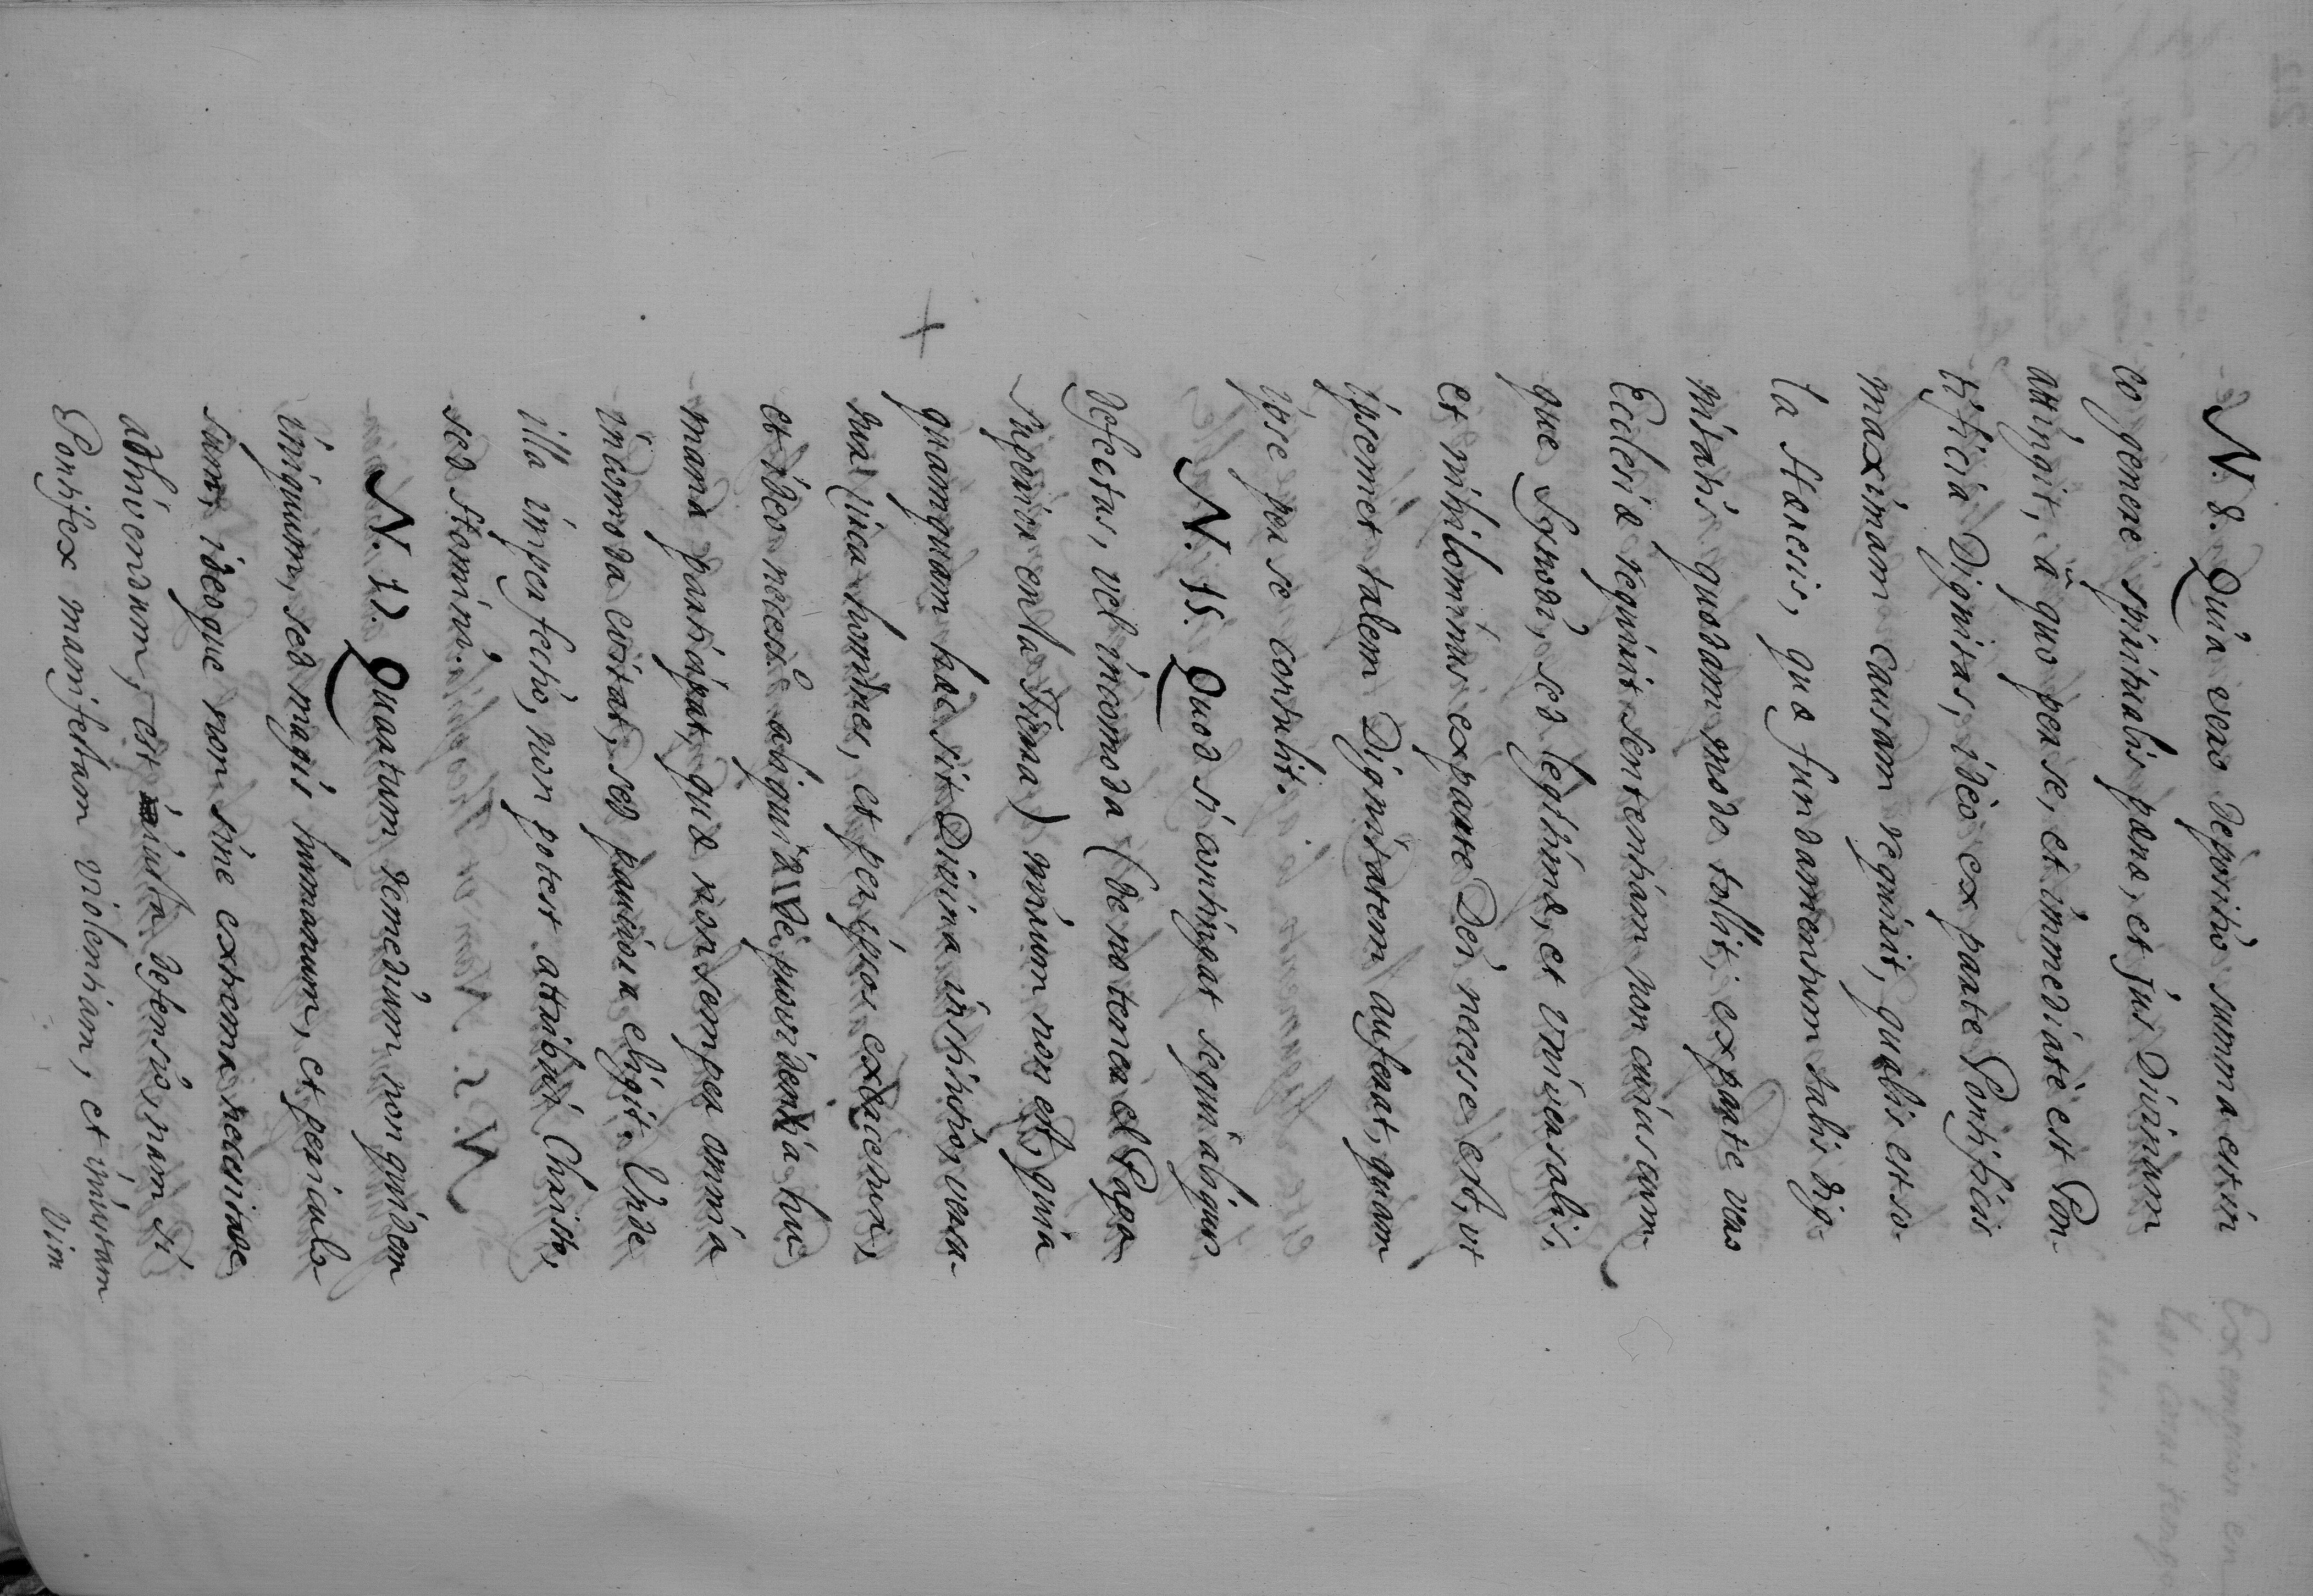 N. 8. Quia vero depositio summa est in
eo genere spiritualis pœna, et jus Divinum
attingit, â quo per se, et immediatè est Pon-
tificia Dignitas, ideò ex parte Pontificis
maximam causam requirit, qualis est so-
la Hæresis, quæ fundamentum talis dig-
nitatis quodam modo tollit; ex parte vero
Ecclesiæ requirit sententiam non cuiuscum-
que Synodi, sed legitimæ, et universalis,
et nihilominus ex parte Dei necesse est, ut
ipsemet talem Dignitatem auferat, quam
ipse per se contulit.
N. 15. Quod si contingat sequi aliquos
defectus, vel incomoda (de no tener el Papa
superior en la tierra) mirum non est, quia
quamquam hæc sit Divina institutio, versa-
tur circa homines, et per ipsos exercetur,
et ideo necesse aliquid de providentia hu-
mana participat, quæ non semper omnia
incomoda evitat, sed pauciora eligit. Unde
illa imperfectio, non potest attribui Christo,
sed Homini.
N. 17. Quartum remedium non quidem
iniquum, sed magis humanum, et periculo-
sum, ideoque non sine extrema necesitate
adhivendum, est iusta defensio, nam si
Pontifex manifestam violentiam, et iniustam
vim